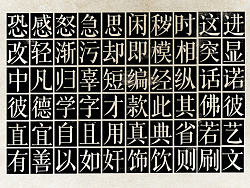 恐感怒急思闲秽时这进
改轻渐污却即模相突显
中凡归辜短编经纵话诺
彼德学字才款此其佛彼
直宜自且用真典省若艺
有善以如奸饰饮则刷文